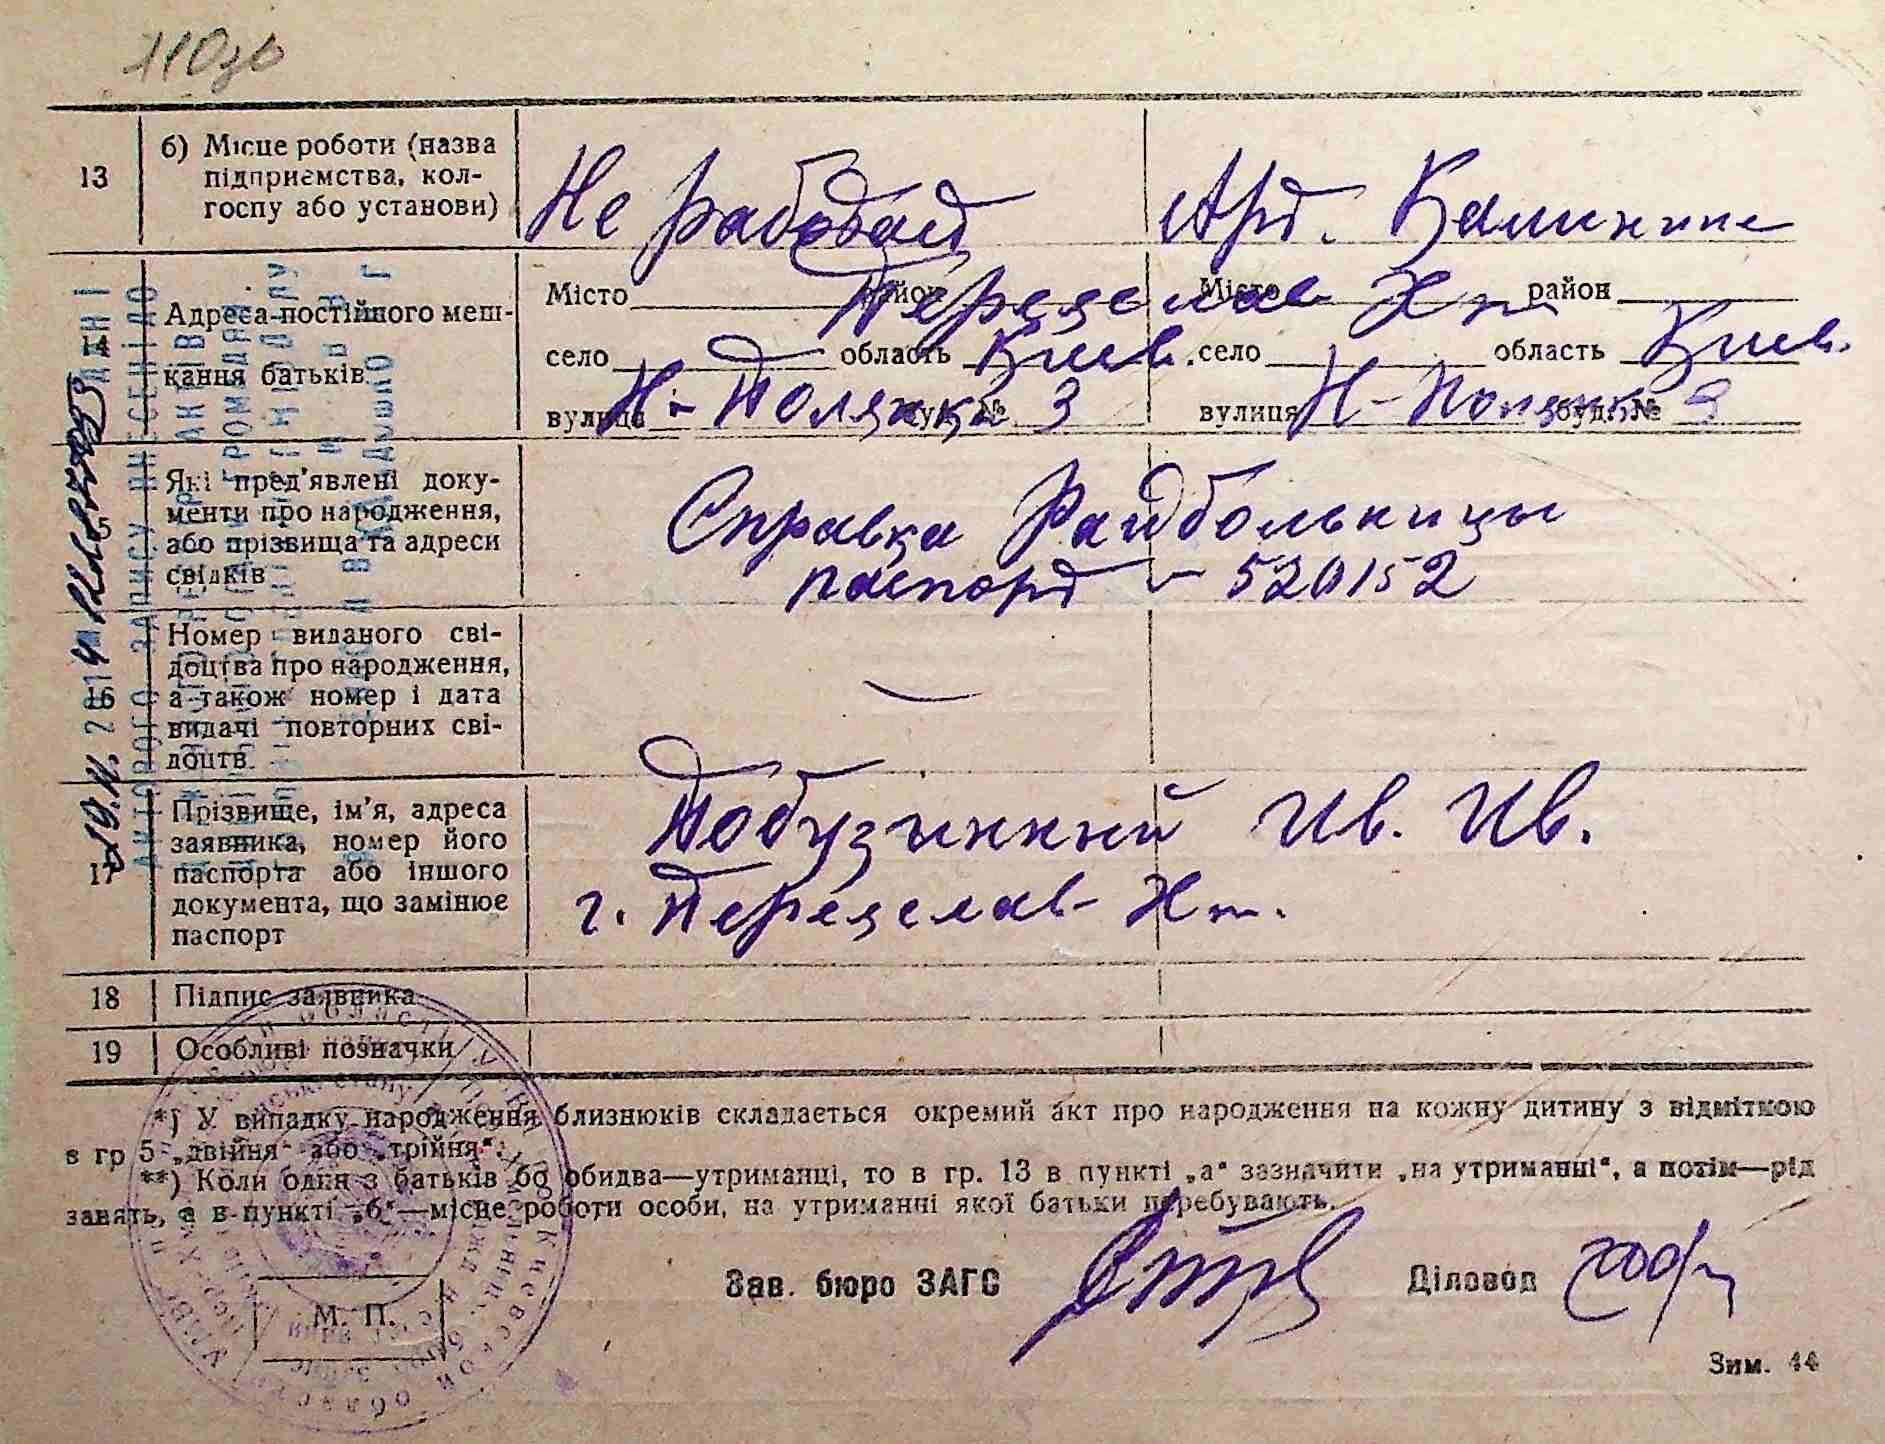 13
б) Місце роботи (назва
підприємства, кол-
госпу або установи)
Не работает
Арт. Калинина
Адреса постійного меш-
кання батьків
Місто район Місто район
Переяслав Хм
село область Киев. село область Киев.
вулиця буд. № 3 вулиця буд. № 3
5
Які пред'явлені доку-
менти про народження,
або прізвища та адреси
свідків
Справка Райбольницы
паспорт - 520152
16
Номер виданого сві-
доцтва про народження,
а також номер і дата
видачі повторних сві-
доцтв
17
Прізвище, ім'я, адреса
заявника, номер його
паспорта або іншого
документа, що замінює
паспорт
Ив. Ив.
г. Переяслав-Хм.
18 Підпис заявника
19 Особливі позначки
*) У випадку народження близнюків складається окремий акт про народження на кожну дитину з відміткою
в гр 5 „двійня“ або „трійня“.
**) Коли один з батьків бо обидва—утриманці, то в гр. 13 в пункті „а“ зазначити „на утриманні“, а потім—рід
занять, а в пункті „б“—місце роботи особи, на утриманні якої батьки перебувають.
Зав. бюро ЗАГС Діловод
М. П.
Зим. 44